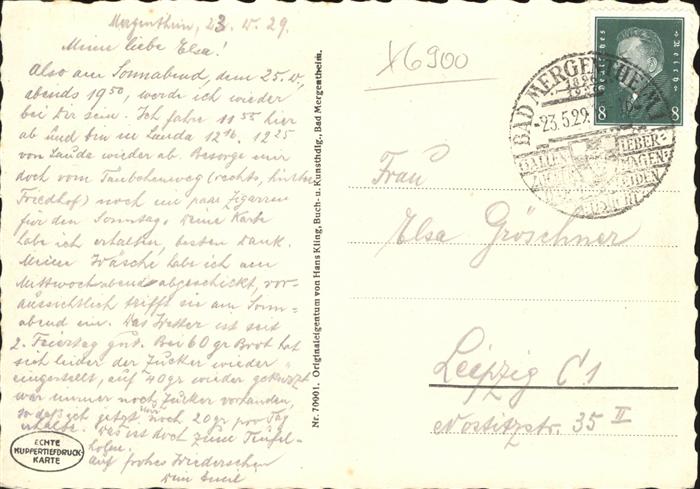 Mergentheim, 23. V. 29.
Meine liebe Elsa!
Also am Sonnabend, dem 25. V.,
abends 19⁵⁰, werde ich wieder
bei Dir sein. Ich fahre 11⁵⁵ hier
ab und bin in Lauda 12¹⁶. 12²⁵
von Lauda wieder ab. Besorge mir
doch vom Täubchenweg (rechts, hinterm
Friedhof) noch ein paar Zigarren
für den Sonntag. Deine Karte
habe ich erhalten, besten Dank.
Meine Wäsche habe ich am
Mittwoch abend abgeschickt, vor-
aussichtlich trifft sie am Sonn-
abend ein. Das Wetter ist seit
2. Feiertag gut. Bei 60 gr Brot hat
sich leider der Zucker wieder
eingestellt, auf 40 gr wieder gekürzt
war immer noch Zucker vorhanden,
sodaß ich jetzt nur noch 20 gr pro Tag
erhalte. Das ist doch zum Teufel-
holen.
Auf frohes Wiedersehen
Dein
ECHTE
KUPFERTIEFDRUCK-
KARTE
Nr. 70901. Originaleigentum von Hans Kling, Buch- u. Kunsthdlg., Bad Mergentheim.
X6900
Deutsches Reich
8 8
BAD MERGENTHEIM
-23.5.29.
Frau
Elsa Gröschner
Leipzig C 1
Nostitzstr. 35 II